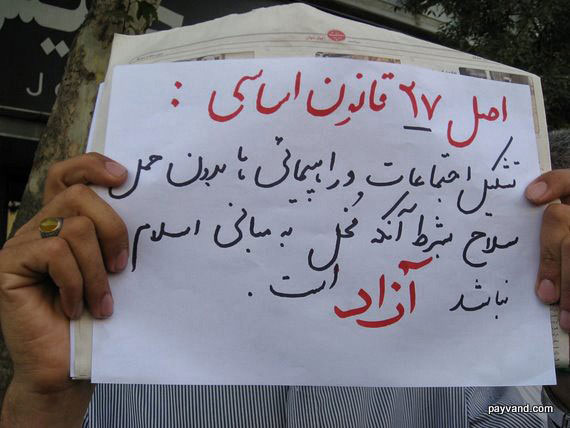 اصل ۲۷ قانون اساسی :
تشکیل اجتماعات و راهپیمائی ها بدون حمل
سلاح بشرط آنکه مُخل به مبانی اسلام
نباشد آزاد است .
payvand.com